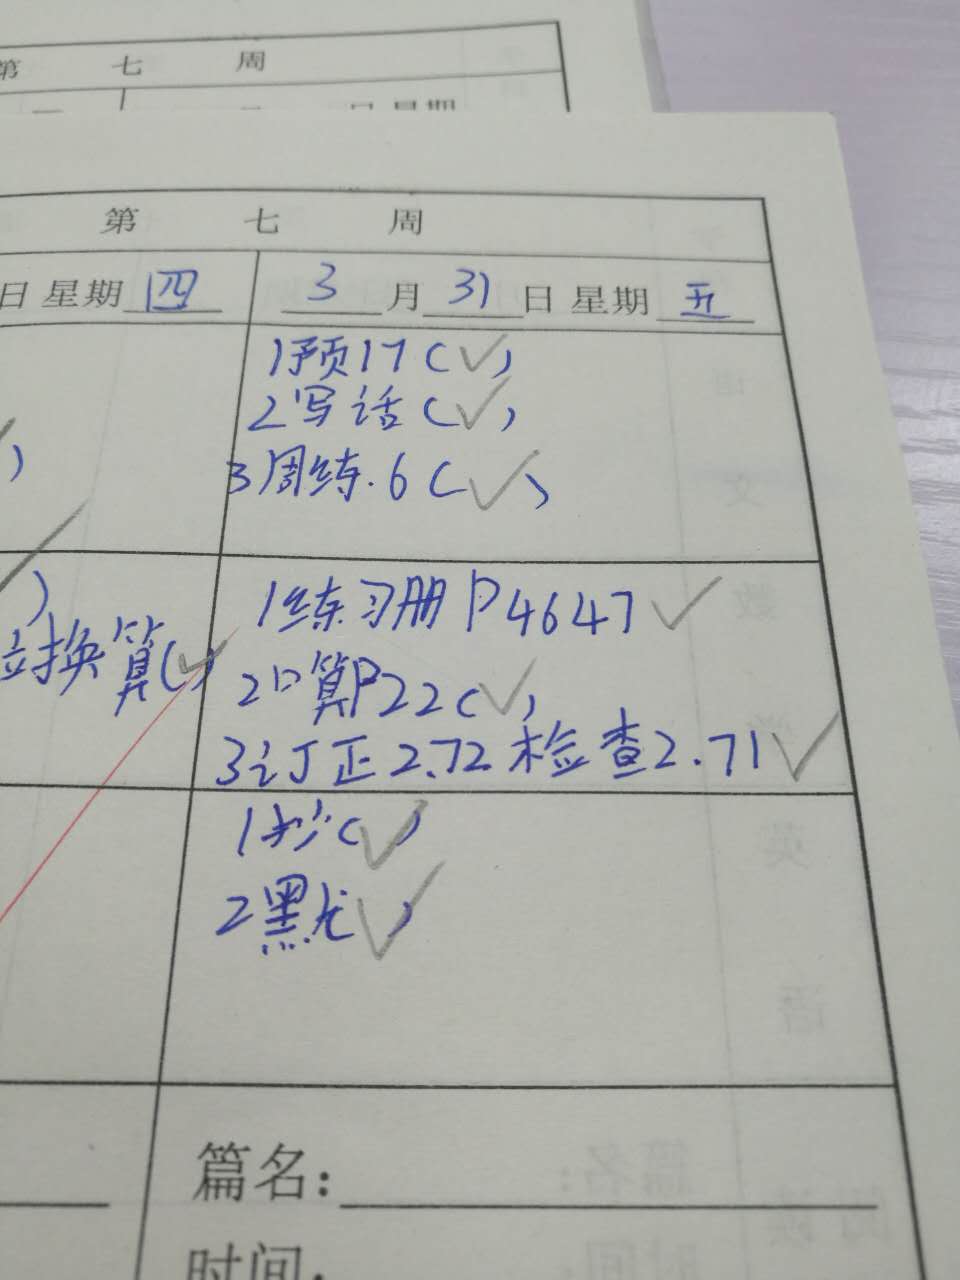 第 七 周
日 星期
第 七 周
日 星期 四
3 月 31 日 星期 五
1预17(✓)
2写话(✓)
3周练.6(✓)
)
)
位换算(✓)
1练习册P4647✓
2口算P22(✓)
3订正2.72检查2.71✓
1抄(✓)
2黑尤(✓)
篇名：
时间：